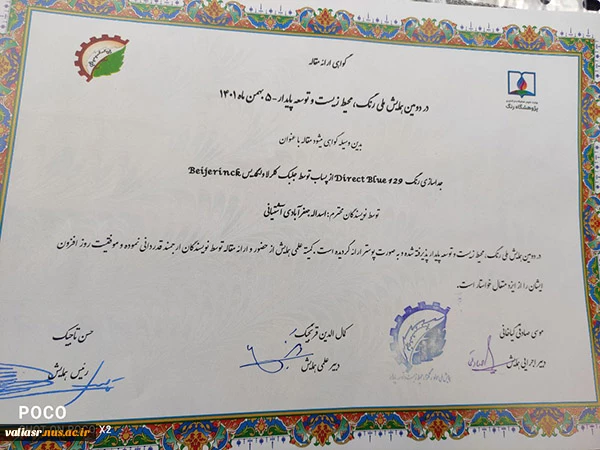 گواهی ارائه مقاله
پژوهشگاه رنگ
در دومین همایش ملی رنگ، محیط زیست و توسعه پایدار - ۵ بهمن ماه ۱۴۰۱
بدین وسیله گواهی میشود مقاله با عنوان
جداسازی رنگ Direct Blue 129 از پساب توسط جلبک کلرلا ولگاریس Beijerinck
توسط نویسندگان محترم: اسداله جعفرآبادی آشتیانی
در دومین همایش ملی رنگ، محیط زیست و توسعه پایدار پذیرفته شده و به صورت پوستر ارائه گردیده است. کمیته علمی همایش از حضور و ارائه مقاله توسط نویسندگان ارجمند قدردانی نموده و موفقیت روز افزون
ایشان را از ایزد متعال خواستار است.
موسی صادقی کیاخانی
دبیر اجرایی همایش
کمال الدین قرنجیگ
دبیر علمی همایش
حسن تاجیک
رئیس همایش
POCO
SHOT ON POCO X2
valiasr.nus.ac.ir